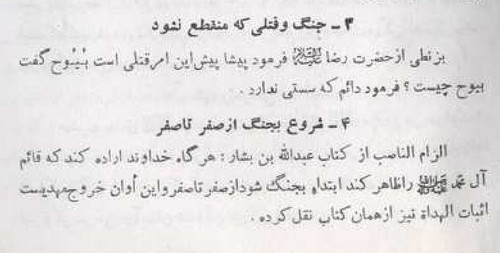 ۳ ـ جنگ وقتلی که منقطع نشود
بزنطی ازحضرت رضا علیه‌السلام فرمود پیشا پیش این امرقتلی است بیُوح گفت
بیوح چیست ؟ فرمود دائم که سستی ندارد .
۴ ـ شروع بجنگ ازصفر تاصفر
الزام الناصب از کتاب عبدالله بن بشار : هرگاه خداوند اراده کند که قائم
آل محمد علیه‌السلام راظاهر کند ابتداء بجنگ شودازصفر تاصفرواین أوان خروج مهدیست
اثبات الهداة نیز ازهمان کتاب نقل کرده .